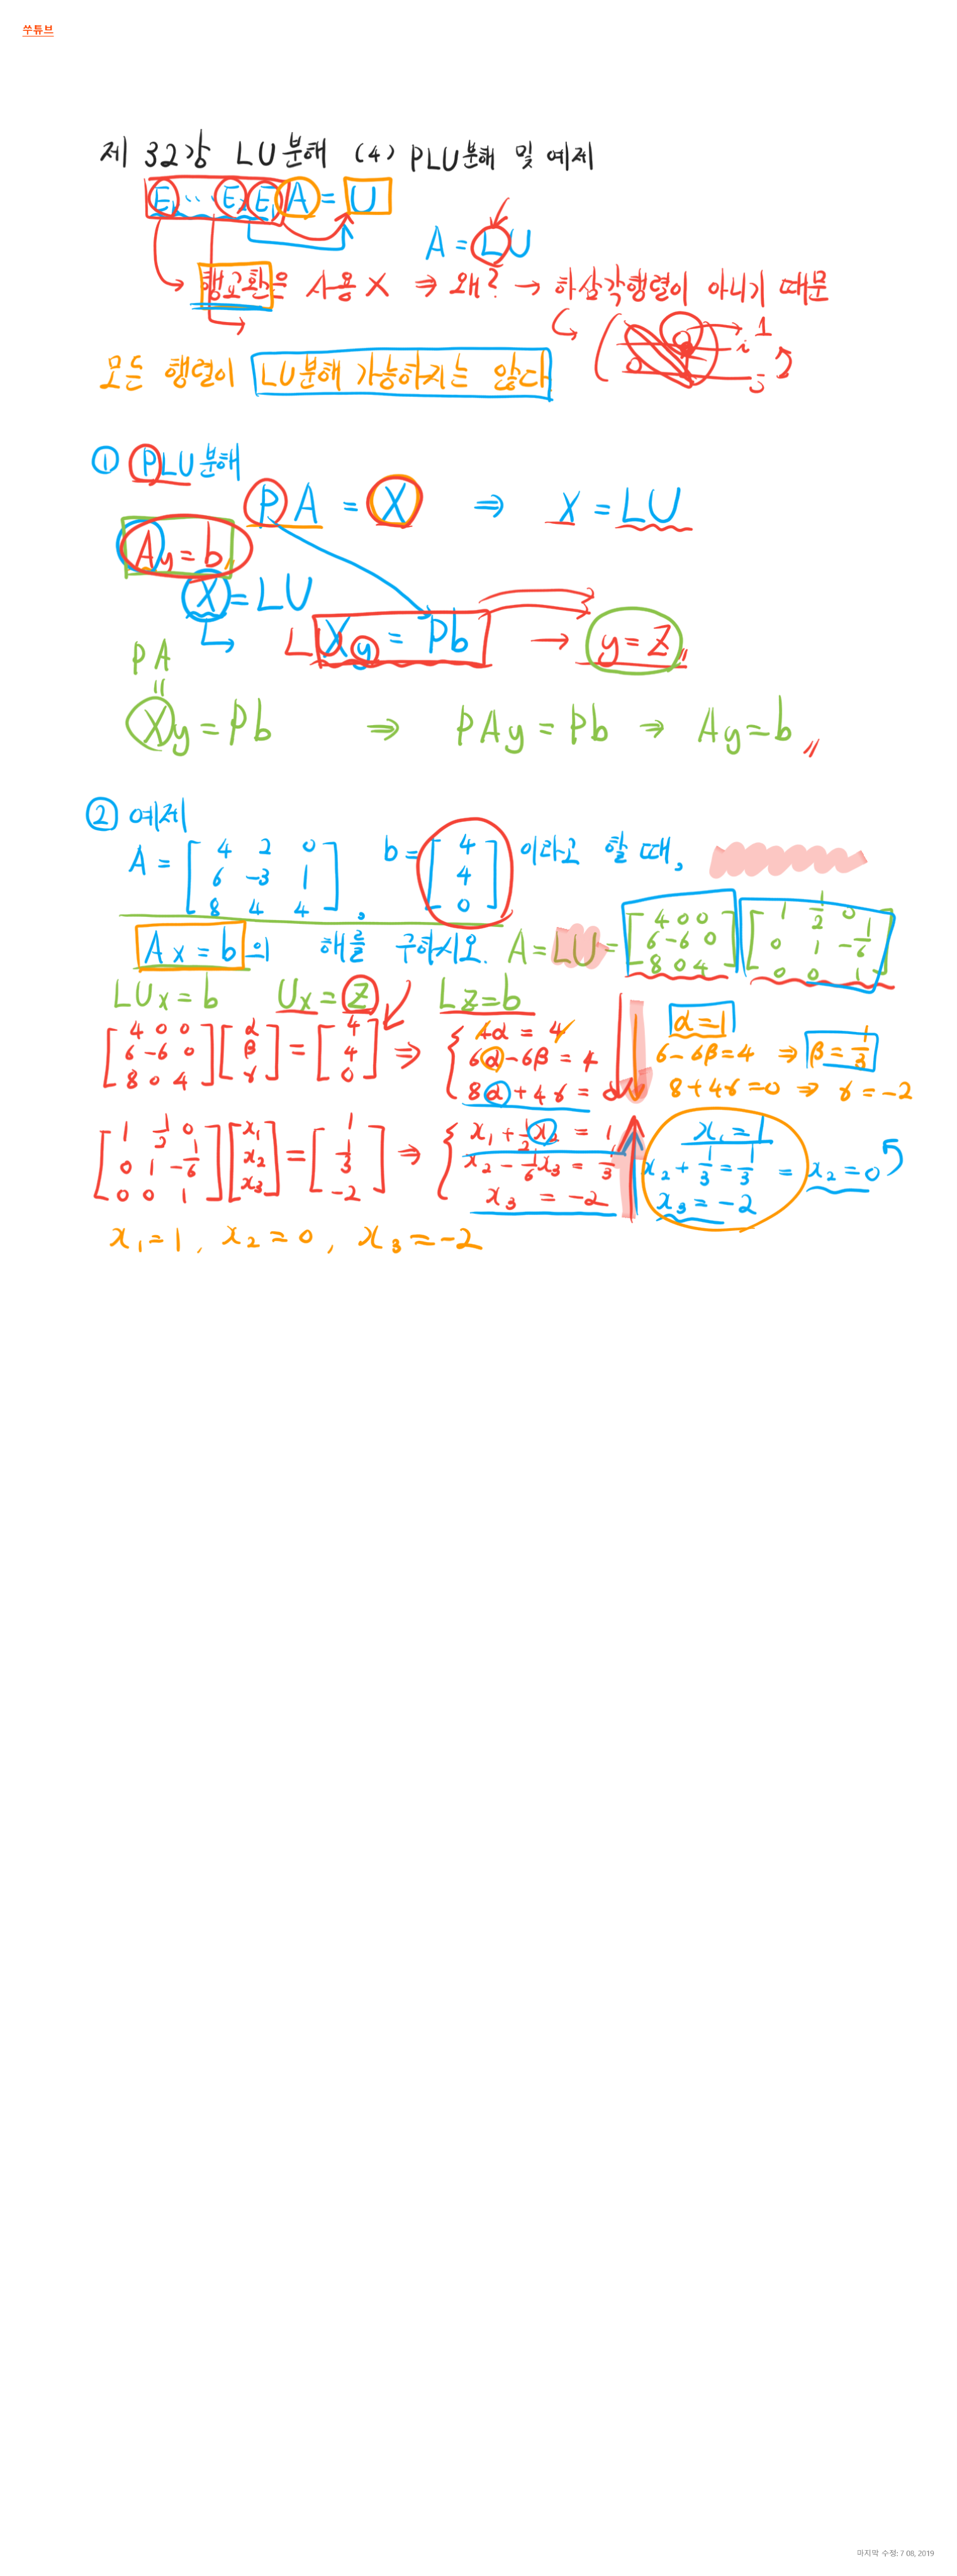 쑤튜브
제 32강 LU분해 (4) PLU분해 및 예제
E ⋯ E₂ E₁ A = U
A = LU
행교환은 사용 X ⇒ 왜? → 하삼각행렬이 아니기 때문
1
i
j
모든 행렬이 LU분해 가능하지는 않다
① PLU분해
PA = X ⇒ X = LU
Ay = b
X = LU
L Xy = Pb → y = Z
PA
=
Xy = Pb ⇒ PAy = Pb ⇒ Ay = b
② 예제
A = [4 2 0; 6 -3 1; 8 4 4], b = [4; 4; 0] 이라고 할 때,
Ax = b의 해를 구하시오. A = LU = [4 0 0; 6 -6 0; 8 0 4] [1 1/2 0; 0 1 -1/6; 0 0 1]
LUx = b Ux = Z LZ = b
[4 0 0; 6 -6 0; 8 0 4] [α; β; γ] = [4; 4; 0] ⇒ { 4α = 4
6α - 6β = 4
8α + 4γ = 0
α = 1
6 - 6β = 4 ⇒ β = 1/3
8 + 4γ = 0 ⇒ γ = -2
[1 1/2 0; 0 1 -1/6; 0 0 1] [x₁; x₂; x₃] = [1; 1/3; -2] ⇒ { x₁ + 1/2 x₂ = 1
x₂ - 1/6 x₃ = 1/3
x₃ = -2
x₁ = 1
x₂ + 1/3 = 1/3 = x₂ = 0
x₃ = -2
x₁ = 1, x₂ = 0, x₃ = -2
마지막 수정: 7 08, 2019